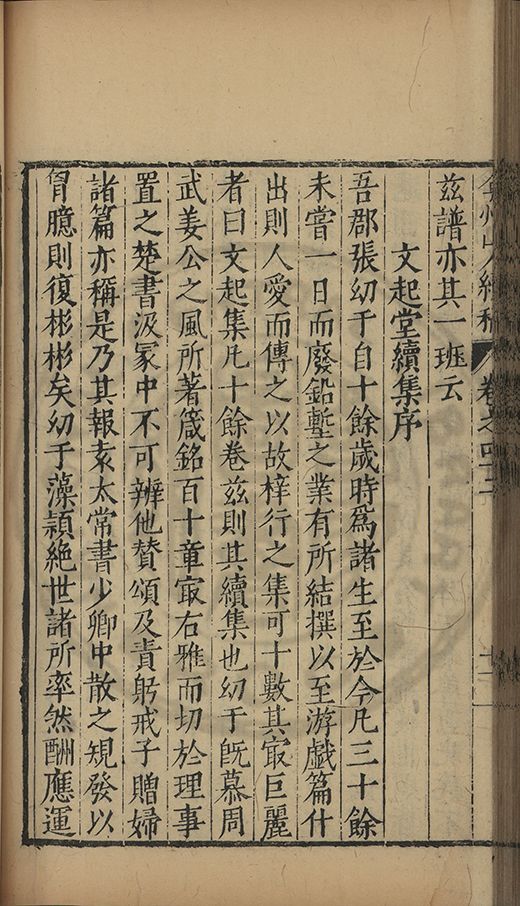 弇州山人續稿 卷之四十二 十二
茲譜亦其一班云
文起堂續集序
吾郡張幼于自十餘歲時爲諸生至於今凡三十餘
未嘗一日而廢鉛塹之業有所結撰以至游戲篇什
出則人愛而傳之以故梓行之集可十數其㝡巨麗
者曰文起集凡十餘卷茲則其續集也幼于旣慕周
武姜公之風所著箴銘百十章㝡右雅而切於理事
置之楚書汲冢中不可辨他贊頌及責躬戒子贈婦
諸篇亦稱是乃其報袁太常書少卿中散之規發以
胷臆則復彬彬矣幼于藻頴絕世諸所率然酬應運